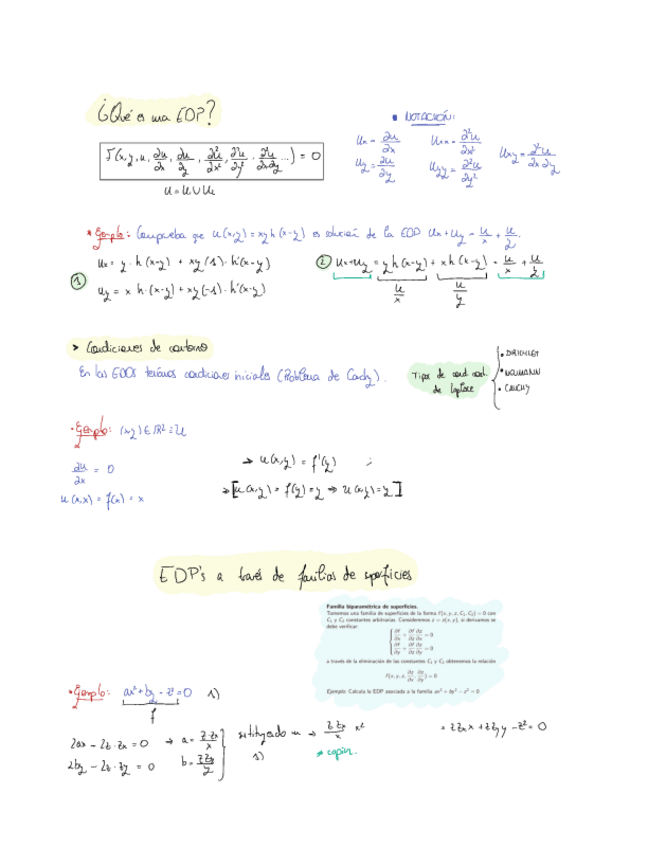 ¿Qué es una EDP?
F(x, y, u, ∂u/∂x, ∂u/∂y, ∂²u/∂x², ∂²u/∂y², ∂²u/∂x∂y ...) = 0
• NOTACIÓN:
ux = ∂u/∂x uxx = ∂²u/∂x² uxy = ∂²u/∂x∂y
uy = ∂u/∂y uyy = ∂²u/∂y²
* Ejemplo: Comprueba que u(x,y) = xy h(x-y) es solución de la EDP ux + uy = u/x + u/y.
① ux = y · h(x-y) + xy(1) · h'(x-y)
uy = x h · (x-y) + xy(-1) · h'(x-y)
② ux+uy = y h(x-y) + x h(x-y) = u/x + u/y
u/x u/y
> Condiciones de contorno
En las EDOS teníamos condiciones iniciales (Problema de Cauchy).
Tipos de cond. cont. de Laplace
• DIRICHLET
• NEUMANN
• CAUCHY
• Ejemplo: (x,y) ∈ ℝ² = U
∂u/∂x = 0
u(x,x) = f(x) = x
→ u(x,y) = f'(y)
→ [u(x,y) = f(y) = y ⇒ u(x,y) = y]
EDP's a través de familias de superficies
Familia biparamétrica de superficies.
Tomemos una familia de superficies de la forma f(x, y, z, C₁, C₂) = 0 con
C₁ y C₂ constantes arbitrarias. Consideremos z = z(x, y), si derivamos se
debe verificar:
∂f/∂x + ∂f/∂z ∂z/∂x = 0
∂f/∂y + ∂f/∂z ∂z/∂y = 0
a través de la eliminación de las constantes C₁ y C₂ obtenemos la relación
F(x, y, z, ∂z/∂x, ∂z/∂y) = 0
Ejemplo: Calcula la EDP asociada a la familia ax² + by² − z² = 0
• Ejemplo: ax² + by - z² = 0 1)
f
2ax - 2z · zx = 0 → a = z·zx/x
2by - 2z · zy = 0 b = z zy/y
sustituyendo en 1) → z zx/x x²
= z zx x + z zy y - z² = 0
* copiar.